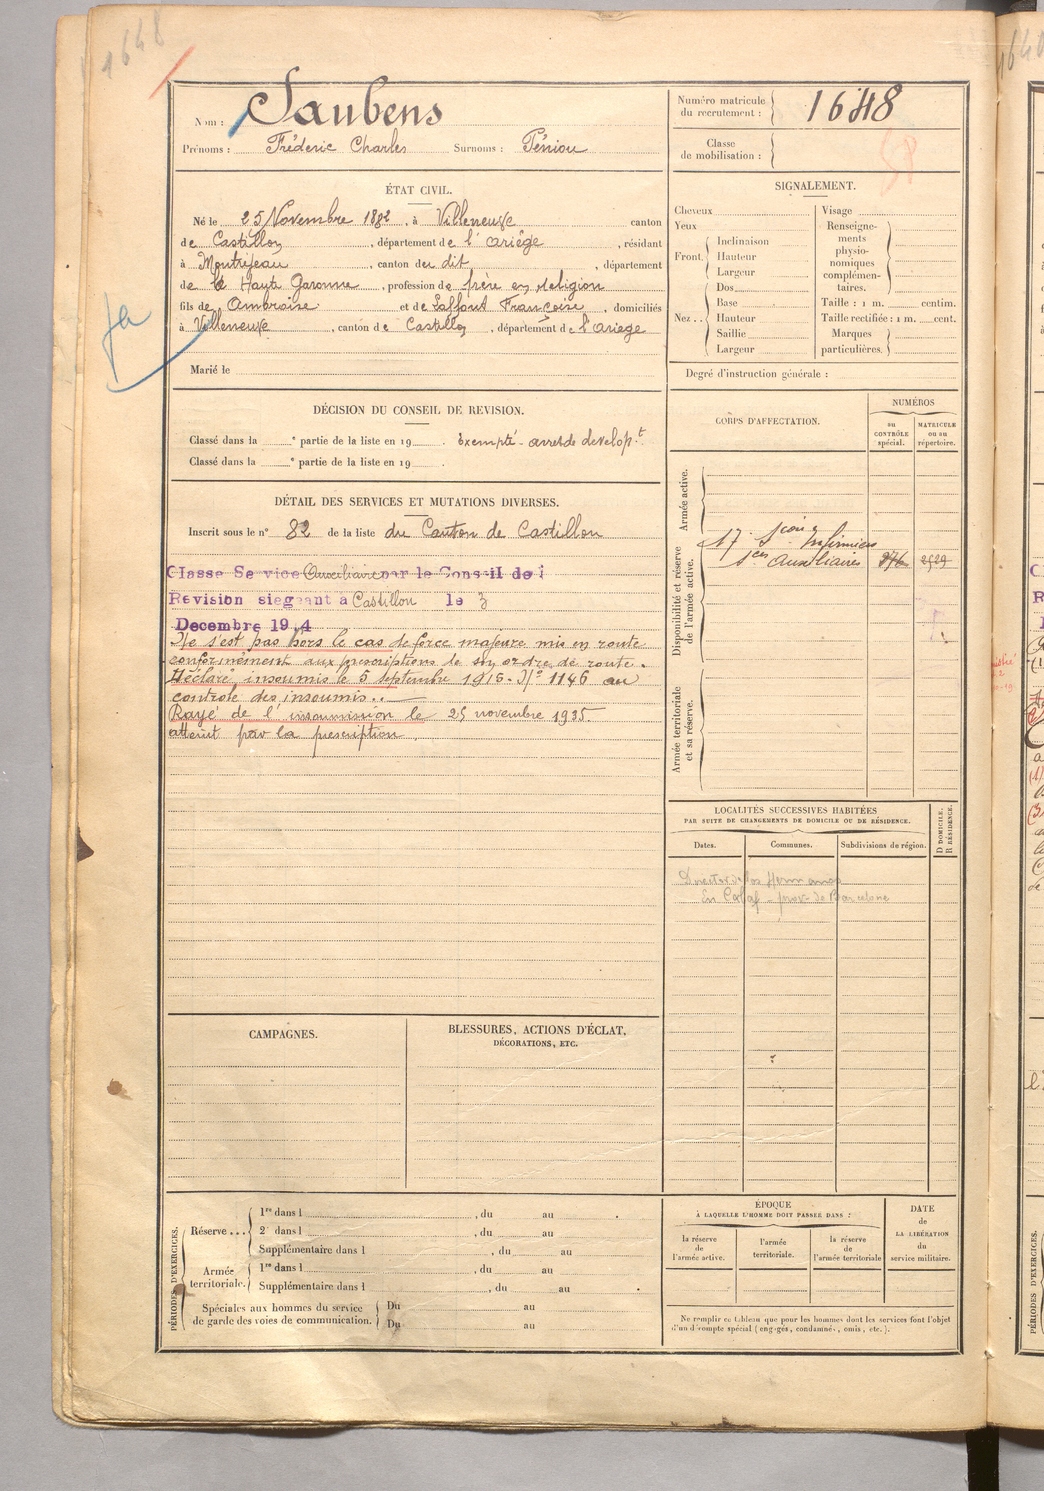 1648
Nom : Saubens
Prénoms : Frédéric Charles Surnoms : Péniou
Numéro matricule du recrutement : 1648
Classe de mobilisation :
ÉTAT CIVIL.
Né le 25 Novembre 1882, à Villeneuve canton
de Castillon, département de l'ariège, résidant
à Montréjeau, canton du dit, département
de la Haute Garonne, profession de frère en religion
fils de Ambroise et de Laffont Françoise, domiciliés
à Villeneuve, canton de Castillon, département de l'ariege
Marié le
SIGNALEMENT.
Cheveux
Yeux
Front. Inclinaison
Hauteur
Largeur
Nez .. Dos
Base
Hauteur
Saillie
Largeur
Visage
Renseignements physionomiques complémentaires.
Taille : 1 m. centim.
Taille rectifiée : 1 m. cent.
Marques particulières.
Degré d'instruction générale :
DÉCISION DU CONSEIL DE REVISION.
Classé dans la e partie de la liste en 19 . Exempté - arret de develop.t
Classé dans la e partie de la liste en 19 .
DÉTAIL DES SERVICES ET MUTATIONS DIVERSES.
Inscrit sous le n° 82 de la liste du Canton de Castillon
Classe Service Auxiliaire par le Conseil de
Revision siegeant à Castillon le 3
Decembre 1914
Ne s'est pas hors le cas de force majeure mis en route
conformément aux prescriptions de son ordre de route.
Déclaré insoumis le 5 septembre 1915 - N° 1146 au
controle des insoumis.
Rayé de l'insoumission le 25 novembre 1935.
atteint par la prescription
CORPS D'AFFECTATION.
NUMÉROS
au CONTRÔLE spécial.
MATRICULE ou au répertoire.
Armée active.
Disponibilité et réserve de l'armée active.
Armée territoriale et sa réserve.
17e Son Infirmiers
Sces Auxiliaires 376 2529
LOCALITÉS SUCCESSIVES HABITÉES
PAR SUITE DE CHANGEMENTS DE DOMICILE OU DE RÉSIDENCE.
Dates. Communes. Subdivisions de région. D DOMICILE. R RÉSIDENCE.
Director de los Hermanos
En Calaf - prov. de Barcelone
CAMPAGNES.
BLESSURES, ACTIONS D'ÉCLAT,
DÉCORATIONS, ETC.
PÉRIODES D'EXERCICES.
Réserve ... 1re dans l , du au .
2e dans l , du au
Supplémentaire dans l , du au
Armée territoriale. 1re dans l , du au
Supplémentaire dans l , du au .
Spéciales aux hommes du service de garde des voies de communication. Du au
Du au
ÉPOQUE
À LAQUELLE L'HOMME DOIT PASSER DANS :
la réserve de l'armée active.
l'armée territoriale.
la réserve de l'armée territoriale
DATE de LA LIBÉRATION du service militaire.
Ne remplir ce tableau que pour les hommes dont les services font l'objet
d'un décompte spécial (engagés, condamnés, omis, etc.).